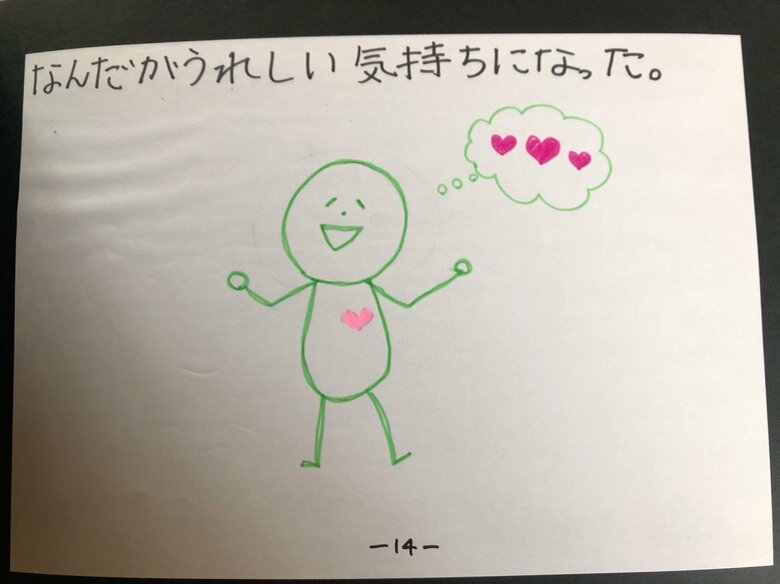 なんだかうれしい気持ちになった。
-14-